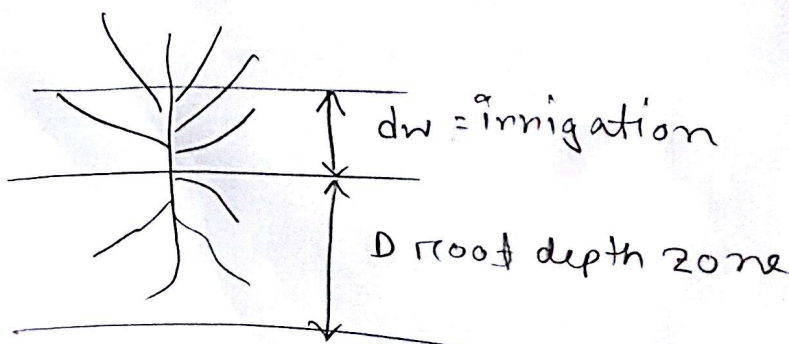 dw = irrigation
D root depth zone